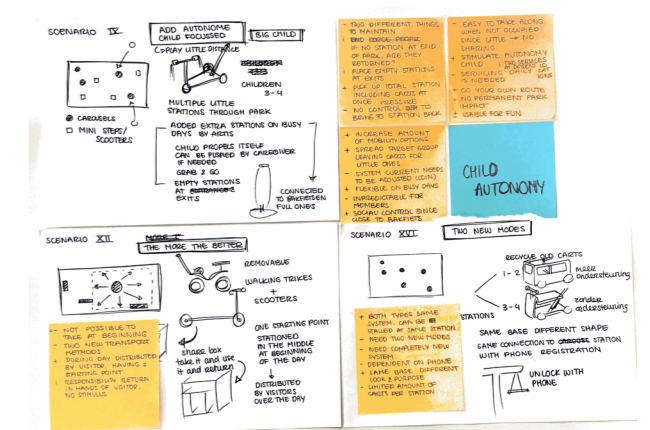 SCENARIO IV
ADD AUTONOME
CHILD FOCUSSED
BIG CHILD
↳ PLAY LITTLE DISTANCE
CHILDREN
3-4
MULTIPLE LITTLE
STATIONS THROUGH PARK
CAROUSELS
MINI STEPS/
SCOOTERS
ADDED EXTRA STATIONS ON BUSY
DAYS BY ARTIS
CHILD PROPELS ITSELF
CAN BE PUSHED BY CAREGIVER
IF NEEDED
GRAB & GO
EMPTY STATIONS
AT
EXITS
CONNECTED
TO BAKFIETSEN
FULL ONES
- TWO DIFFERENT THINGS
TO MAINTAIN
IF NO STATION AT END
OF PARK, ARE THEY
RETURNED?
PLACE EMPTY STATIONS
AT EXITS
+ PICK UP TOTAL STATION
INCLUDING CARTS AT
ONCE PRESSURE
- NO CONTROL TO
BRING TO STATION BACK
- EASY TO TAKE ALONG
WHEN NOT OCCUPIED
SINCE LITTLE → NO
SHARING
+ STIMULATE AUTONOMY
CHILD
- SERVICING DAILY
IS NEEDED
+ GO YOUR OWN ROUTE
+ NO PERMANENT PARK
IMPACT
± USABLE FOR FUN
+ INCREASE AMOUNT
OF MOBILITY OPTIONS
+ SPREAD TARGET GROUP
LEAVING CARTS FOR
LITTLE ONES
- SYSTEM CURRENT NEEDS
TO BE ADJUSTED (COIN)
+ FLEXIBLE ON BUSY DAYS
- UNPREDICTABLE FOR
MEMBERS
+ SOCIAL CONTROL SINCE
CLOSE TO BAKFIETS
CHILD
AUTONOMY
SCENARIO XII
THE MORE THE BETTER
REMOVABLE
WALKING TRIKES
+
SCOOTERS
ONE STARTING POINT
STATIONED
IN THE MIDDLE
AT BEGINNING
OF THE DAY
DISTRIBUTED
BY VISITORS
OVER THE DAY
share box
take it and use
it and return
- NOT POSSIBLE TO
TAKE AT BEGINNING
- TWO NEW TRANSPORT
METHODS
+ DURING DAY DISTRIBUTED
BY VISITOR, HAVING 1
STARTING POINT
RESPONSIBILITY RETURN
IN HANDS OF VISITOR,
NO STIMULUS
SCENARIO XVI
TWO NEW MODES
RECYCLE OLD CARTS
1-2
meer
ondersteuning
STATIONS
3-4
zonder
ondersteuning
SAME BASE DIFFERENT SHAPE
SAME CONNECTION TO STATION
WITH PHONE REGISTRATION
UNLOCK WITH
PHONE
+ BOTH TYPES SAME
SYSTEM, CAN BE
STALLED AT SAME STATION
- NEED TWO NEW MODES
- NEED COMPLETELY NEW
SYSTEM
- DEPENDENT ON PHONE
+ SAME BASE DIFFERENT
LOOK & PURPOSE
- LIMITED AMOUNT OF
CARTS PER STATION